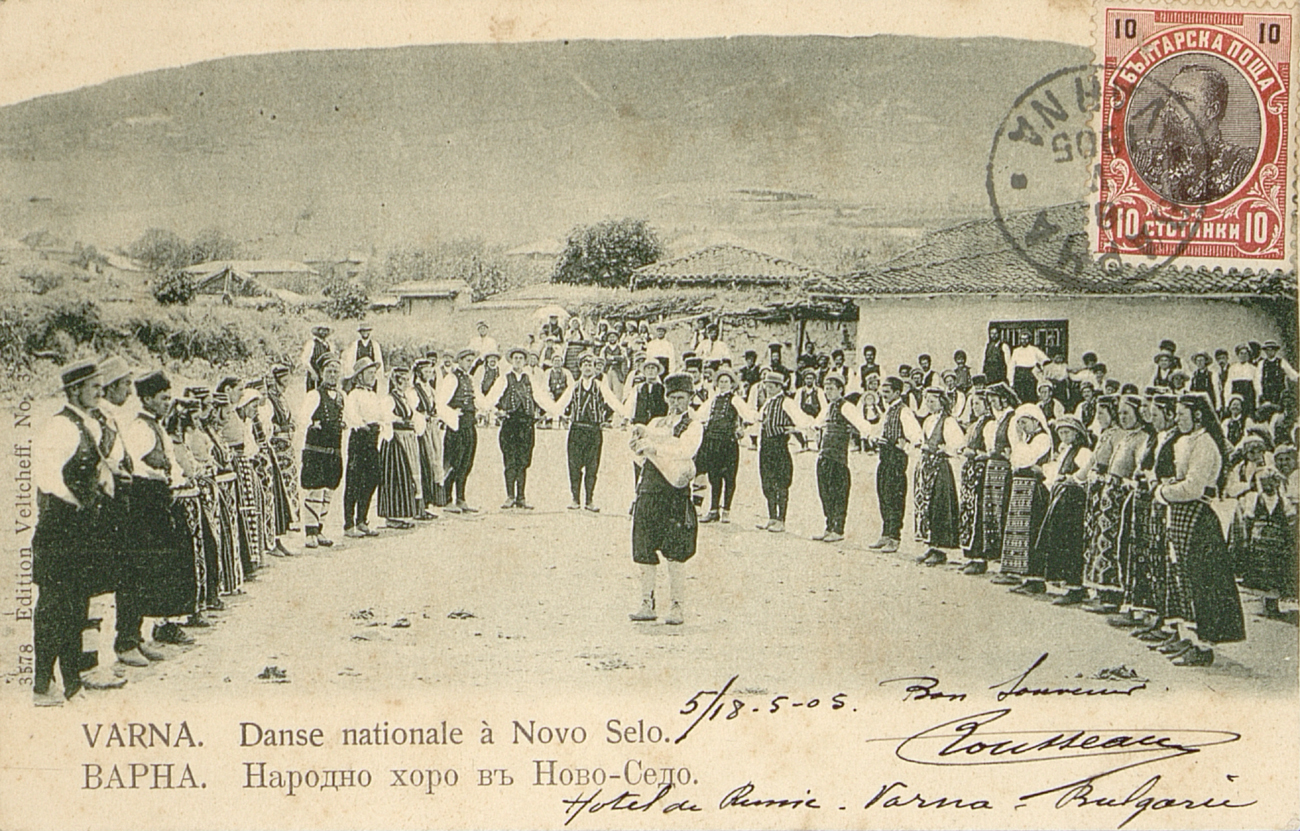 10 10
БЪЛГАРСКА ПОЩА
10 СТОТИНКИ 10
VARNA
905
3578 Edition Veltcheff. No. 3
VARNA. Danse nationale à Novo Selo.
ВАРНА. Народно хоро въ Ново-Село.
5/18-5-05. Bon Souvenir
Rousseau
Hotel de Russie - Varna - Bulgarie